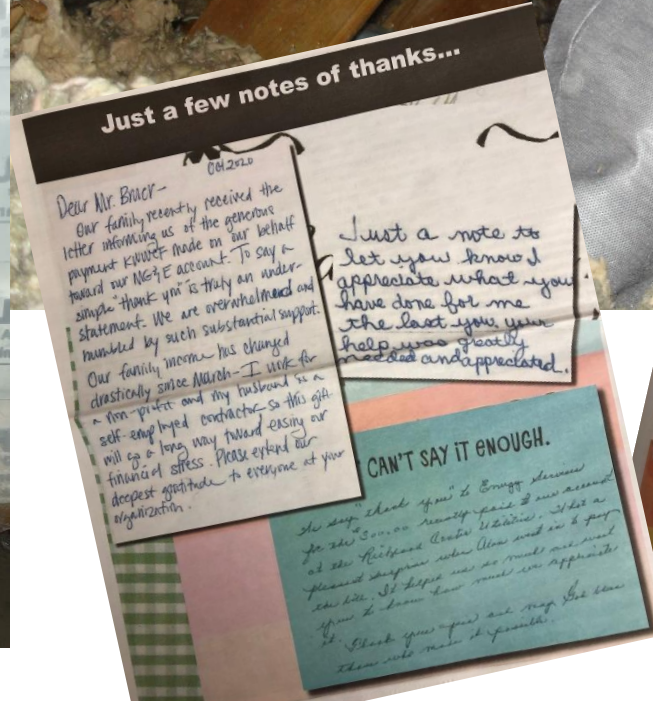 Just a few notes of thanks...
Oct. 2020
Dear Mr. Bruer-
Our family recently received the
letter informing us of the generous
payment KWWEF made on our behalf
toward our MG&E account. To say a
simple "thank you" is truly an under-
statement. We are overwhelmed and
humbled by such substantial support.
Our family income has changed
drastically since March - I work for
a non-profit and my husband is a
self-employed contractor so this gift
will go a long way toward easing our
financial stress. Please extend our
deepest gratitude to everyone at your
organization.
Just a note to
let you know I
appreciate what you
have done for me
the last you, your
help was greatly
needed and appreciated.
CAN'T SAY IT ENOUGH.
to say "thank you" to Energy Services
for the 300.00 recently paid to our account
at the Richland Center Utilities. What a
pleasant surprise when Alan went in to pay
the bill. It helped us so much and want
you to know how much we appreciate
it.
Thank you and may God bless
those who made it possible.